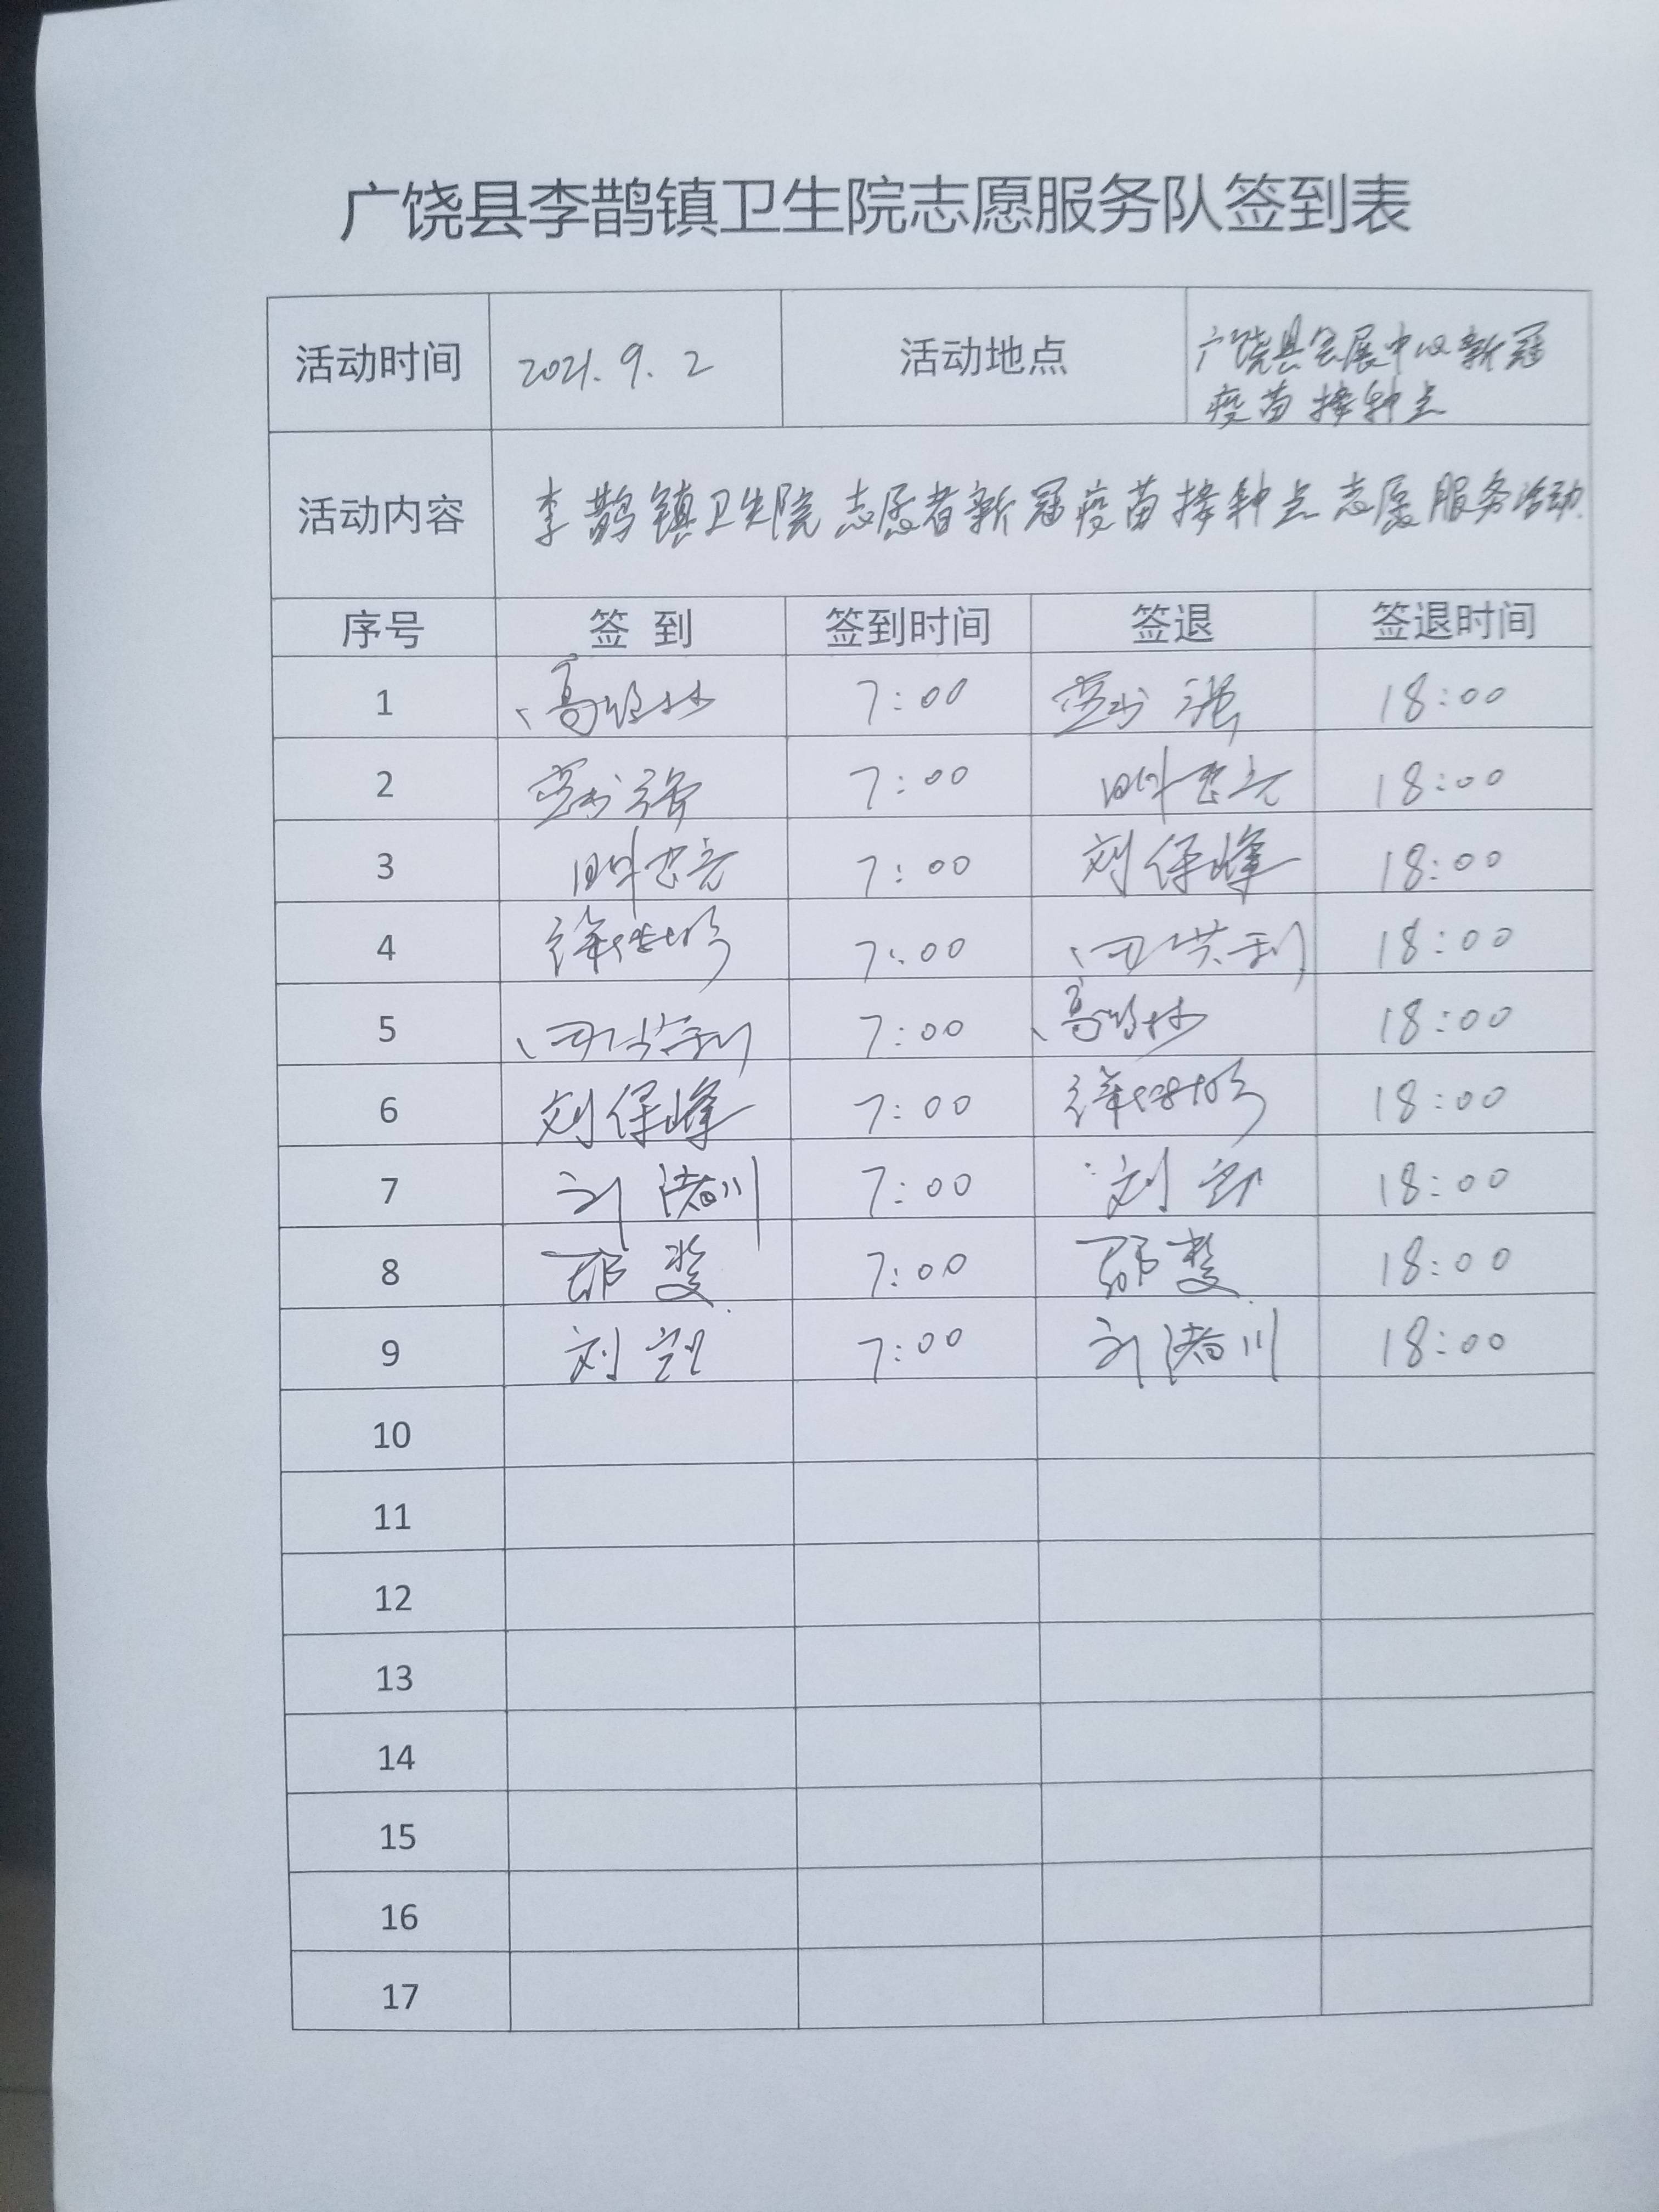 广饶县李鹊镇卫生院志愿服务队签到表
活动时间 2021.9.2 活动地点 广饶县会展中心新冠
疫苗接种点
活动内容 李鹊镇卫生院志愿者新冠疫苗接种点志愿服务活动.
序号 签到 签到时间 签退 签退时间
1 高 7:00 18:00
2 7:00 18:00
3 7:00 刘保峰 18:00
4 7:00 18:00
5 7:00 高 18:00
6 刘保峰 7:00 18:00
7 7:00 刘 18:00
8 7:00 18:00
9 刘 7:00 18:00
10
11
12
13
14
15
16
17